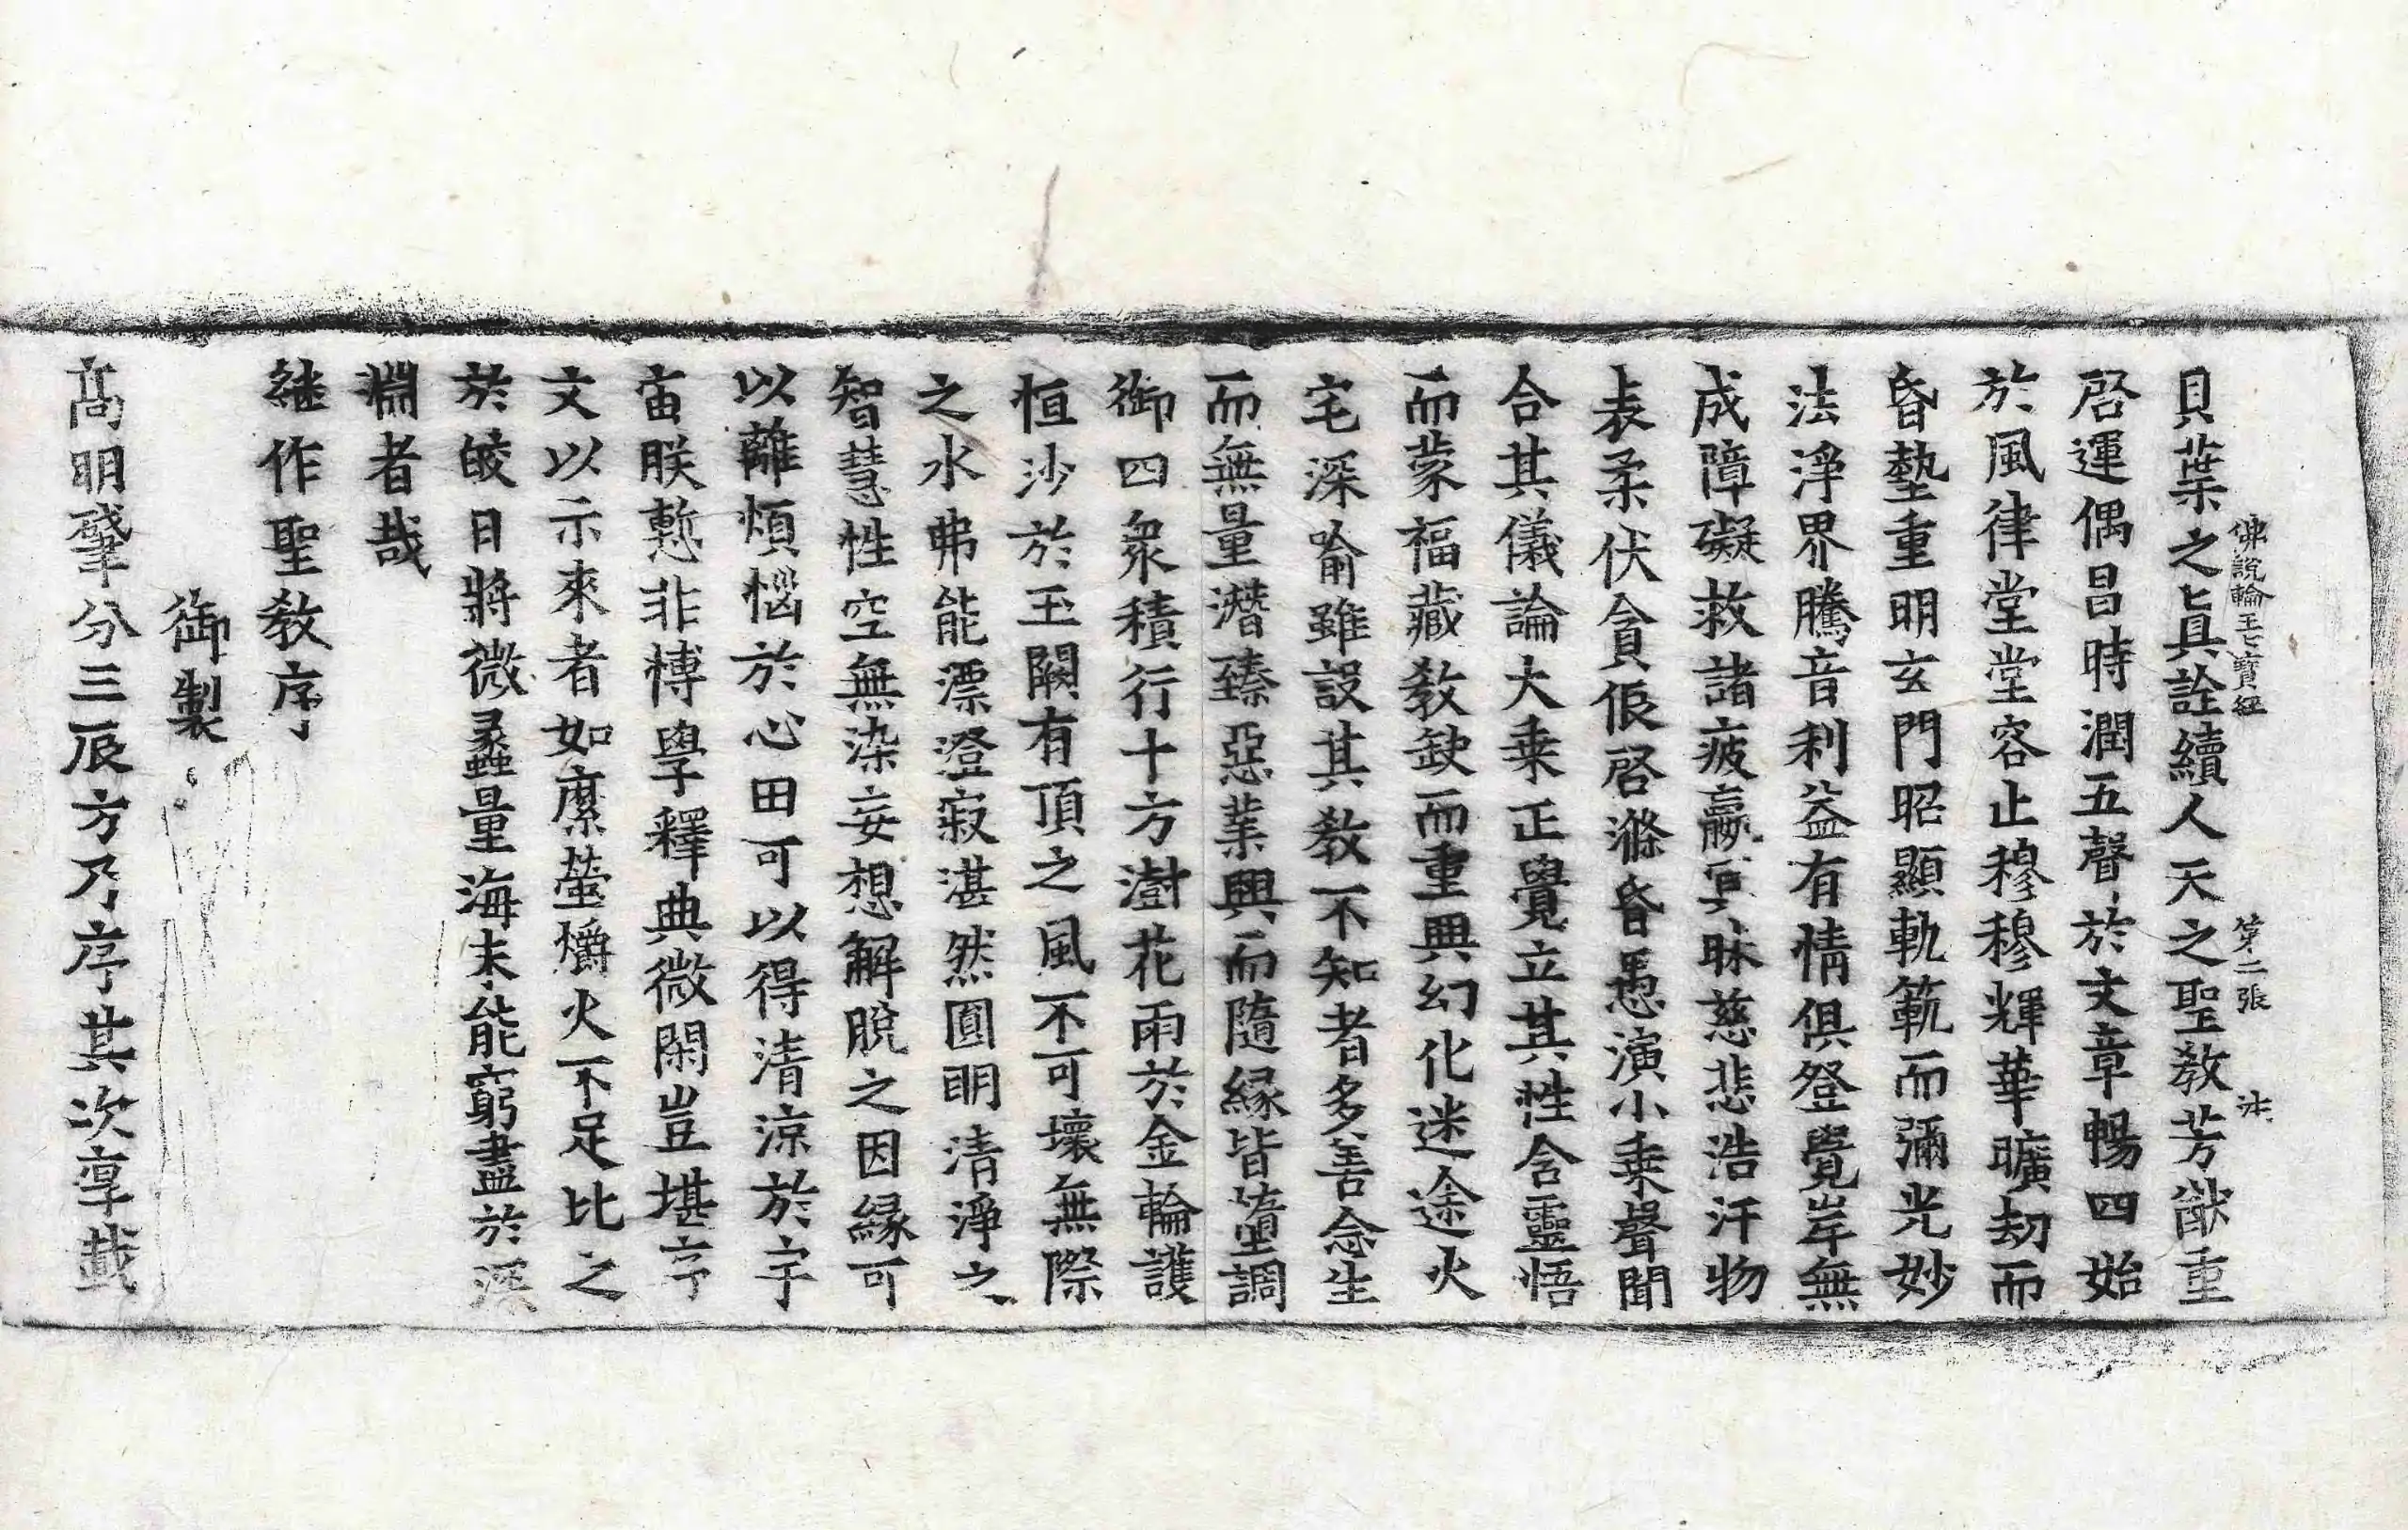 佛說輪王七寶經 第二張
貝葉之眞詮續人天之聖敎芳猷重
啓運偶昌時潤五聲於文章暢四始
於風律堂堂容止穆穆輝華曠劫而
昏墊重明玄門昭顯軌範而彌光妙
法淨界騰音利益有情俱登覺岸無
成障礙救諸疲羸冥昧慈悲浩汗物
表柔伏貪佷啓滌昏愚演小乗聲聞
合其儀論大乗正覺立其性含靈悟
而蒙福藏敎缺而重興幻化迷途火
宅深喩雖設其敎不知者多善念生
而無量潛臻惡業興而隨緣皆墮調
御四衆積行十方澍花雨於金輪護
恒沙於玉闕有頂之風不可壞無際
之水弗能漂澄寂湛然圓明清淨之
智慧性空無染妄想解脫之因緣可
以離煩惱於心田可以得清涼於宇
宙朕慙非博學釋典微閑豈堪序
文以示來者如縻螢爝火不足比之
於皎日將微蠡量海未能窮盡於深
淵者哉
継作聖敎序
御製
高明肇分三辰方乃序其次享載